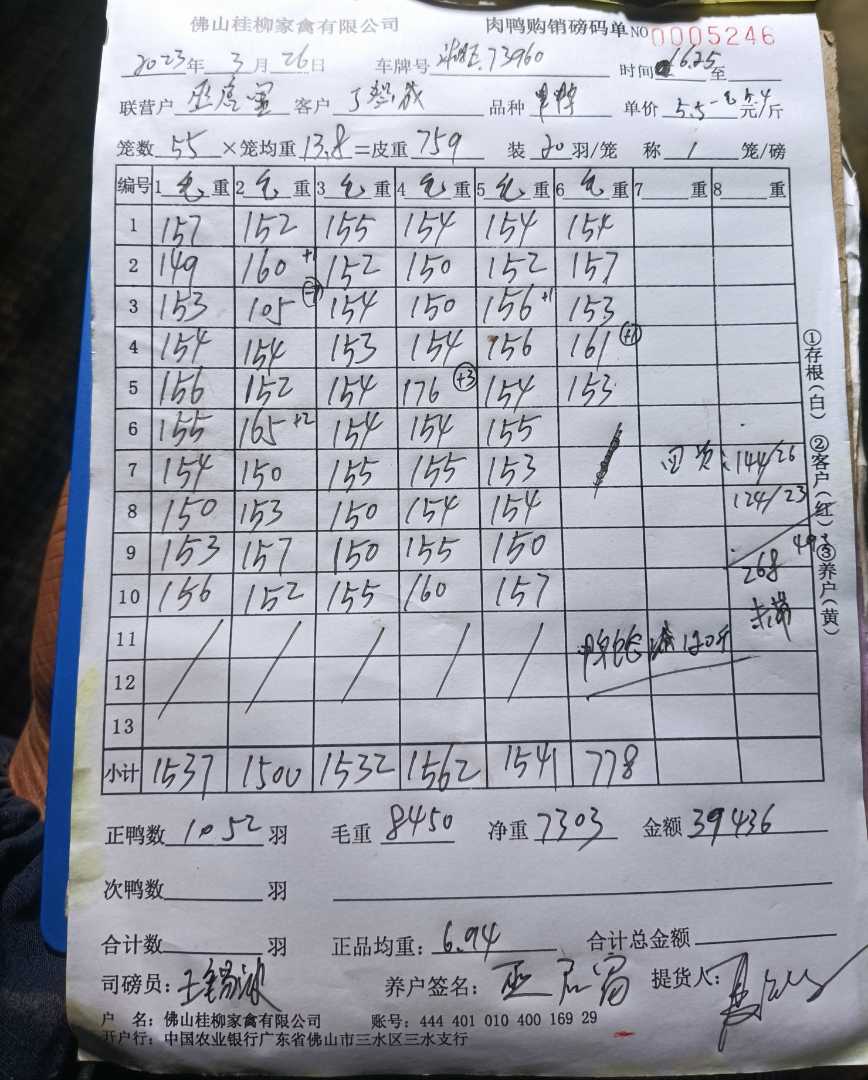 佛山桂柳家禽有限公司 肉鸭购销磅码单 NO 0005246
2023年 3月 26日 车牌号 73960 时间 16.25 至
联营户 客户 品种 单价 5.5 - 5.4 元/斤
笼数 55 ×笼均重 13.8 =皮重 759 装 20 羽/笼 称 1 笼/磅
编号 1 毛 重 2 毛 重 3 毛 重 4 毛 重 5 毛 重 6 毛 重 7 重 8 重
1 157 152 155 154 154 154
2 149 160 +1 152 150 152 157
3 153 105 154 150 156 +1 153
4 154 154 153 154 156 161 +1
5 156 152 154 176 +3 154 153
6 155 165 +2 154 154 155
7 154 150 155 155 153 144/26
8 150 153 150 154 154 124/23
9 153 157 150 155 150 268 49
10 156 152 155 160 157
11
12
13
小计 1537 1500 1532 1562 1541 778
正鸭数 1052 羽 毛重 8450 净重 7303 金额 39436
次鸭数 羽
合计数 羽 正品均重: 6.94 合计总金额
司磅员: 养户签名: 提货人:
户 名: 佛山桂柳家禽有限公司 账号: 444 401 010 400 169 29
开户行: 中国农业银行广东省佛山市三水区三水支行
①存根(白) ②客户(红) ③养户(黄)